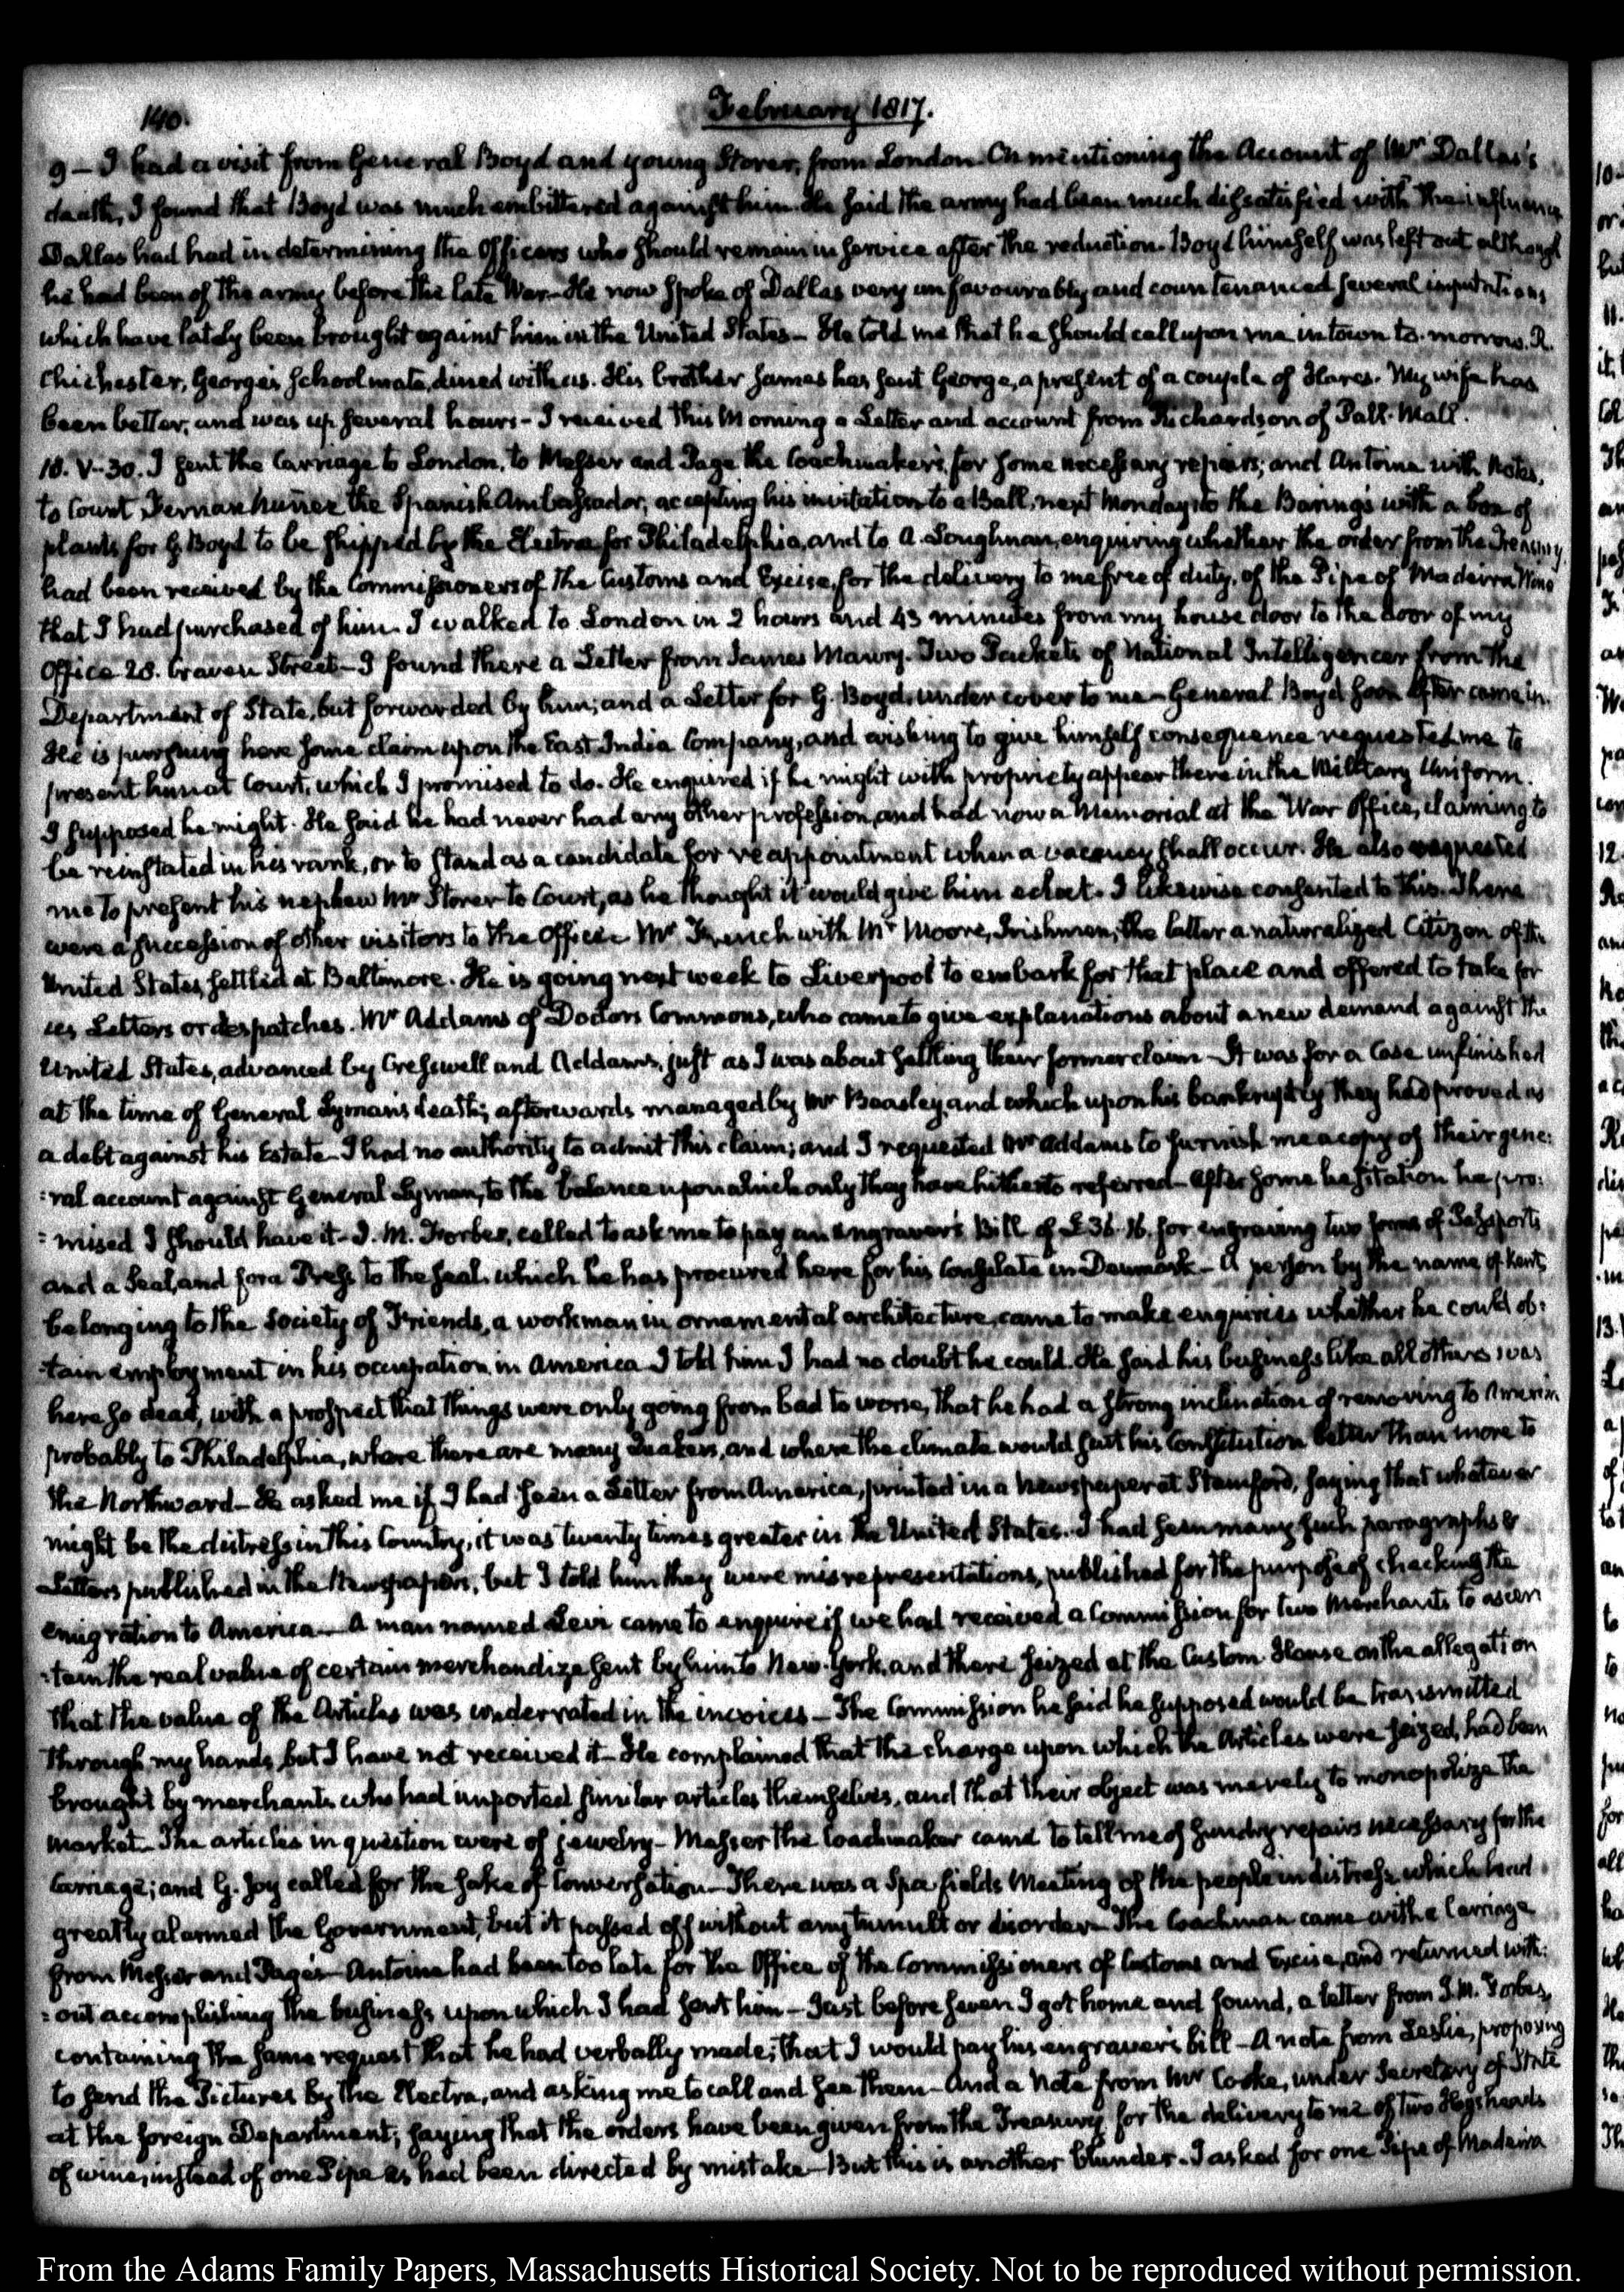 140.
February 1817.
9 — I had a visit from General Boyd and young Storer, from London. On mentioning the Account of Mr Dallas's
death, I found that Boyd was much embittered against him. He said the army had been much dissatisfied with the influence
Dallas had had in determining the Officers who should remain in service after the reduction. Boyd himself was left out although
he had been of the army before the late War — He now spoke of Dallas very unfavourably and countenanced several imputations
which have lately been brought against him in the United States — He told me that he should call upon me in town to-morrow. R.
Chichester, George's schoolmate, dined with us. His brother James has sent George, a present of a couple of Hares. My wife has
been better, and was up several hours — I received this Morning a Letter and account from Richardson of Pall-Mall.
10. V-30. I sent the Carriage to London, to Messer and Page the Coachmaker's, for some necessary repairs; and Antoine with Notes,
to Count Fernan Nuñez the Spanish Ambassador, accepting his invitation to a Ball, next Monday; to the Barings with a box of
plants for G. Boyd to be shipped by the Electra, for Philadelphia, and to A. Loughnan, enquiring whether the order from the Treasury,
had been received by the Commissioners of the Customs and Excise, for the delivery to me free of duty, of the Pipe of Madeira Wine
that I had purchased of him. I walked to London in 2 hours and 43 minutes from my house door to the door of my
Office 28. Craven Street — I found there a Letter from James Maury. Two Packets of National Intelligencer from the
Department of State, but forwarded by him; and a Letter for G. Boyd, under cover to me — General Boyd soon after came in.
He is pursuing here some claim upon the East India Company, and wishing to give himself consequence requested me to
present him at Court, which I promised to do. He enquired if he might with propriety appear there in the Military Uniform.
I supposed he might. He said he had never had any other profession, and had now a Memorial at the War Office, claiming to
be reinstated in his rank, or to stand as a candidate for reappointment when a vacancy shall occur. He also requested
me to present his nephew Mr Storer to Court, as he thought it would give him eclat. I likewise consented to this. There
were a succession of other visitors to the Office. Mr French with Mr Moore, Irishmen, the latter a naturalized Citizen of the
United States, settled at Baltimore. He is going next week to Liverpool to embark for that place and offered to take for
us Letters or despatches. Mr Addams of Doctors Commons, who came to give explanations about a new demand against the
United States, advanced by Cresswell and Addams, just as I was about settling their former claim — It was for a Case unfinished
at the time of General Lyman's death; afterwards managed by Mr Beasley, and which upon his bankruptcy they had proved as
a debt against his Estate — I had no authority to admit this claim; and I requested Mr Addams to furnish me a copy of their gene:
:ral account against General Lyman, to the balance upon which only they have hitherto referred — After some hesitation he pro:
:mised I should have it — J. M. Forbes, called to ask me to pay an engraver's Bill of £36.16. for engraving two forms of Passports
and a Seal, and for a Press to the Seal, which he has procured here for his Consulate in Denmark — A person by the name of Kent,
belonging to the Society of Friends, a workman in ornamental architecture, came to make enquiries whether he could ob:
:tain employment in his occupation, in America. I told him I had no doubt he could. He said his business like all others was
here so dead, with a prospect that things were only going from bad to worse, that he had a strong inclination of removing to America
probably to Philadelphia, where there are many Quakers, and where the climate would suit his Constitution better than more to
the Northward — He asked me if I had seen a Letter from America, printed in a Newspaper at Stamford, saying that whatever
might be the distress in this Country, it was twenty times greater in the United States. I had seen many such paragraphs &
Letters published in the Newspapers, but I told him they were misrepresentations, published for the purpose of checking the
emigration to America — A man named Levi came to enquire if we had received a Commission for two Merchants to ascer
:tain the real value of certain merchandize sent by him to New-York, and there seized at the Custom House on the allegation
that the value of the Articles was underrated in the invoices — The Commission he said he supposed would be transmitted
through my hands, but I have not received it — He complained that the charge upon which the Articles were seized, had been
brought by merchants who had imported similar articles themselves, and that their object was merely to monopolize the
market — The articles in question were of jewelry — Messer the Coachmaker came to tell me of sundry repairs necessary for the
Carriage; and G. Joy called for the sake of Conversation — There was a Spa fields Meeting of the people in distress, which had
greatly alarmed the Government, but it passed off without any tumult or disorder — The Coachman came with a Carriage
from Messer and Page's — Antoine had been too late for the Office of the Commissioners of Customs and Excise, and returned with:
:out accomplishing the business upon which I had sent him — Just before seven I got home and found, a letter from J. M. Forbes,
containing the same request that he had verbally made; that I would pay his engraver's bill — A note from Leslie, proposing
to send the Pictures by the Electra, and asking me to call and see them — And a Note from Mr Cooke, under Secretary of State
at the foreign Department; saying that the orders have been given from the Treasury for the delivery to me of two Hogsheads
of wine, instead of one Pipe as had been directed by mistake — But this is another blunder. I asked for one Pipe of Madeira
From the Adams Family Papers, Massachusetts Historical Society. Not to be reproduced without permission.